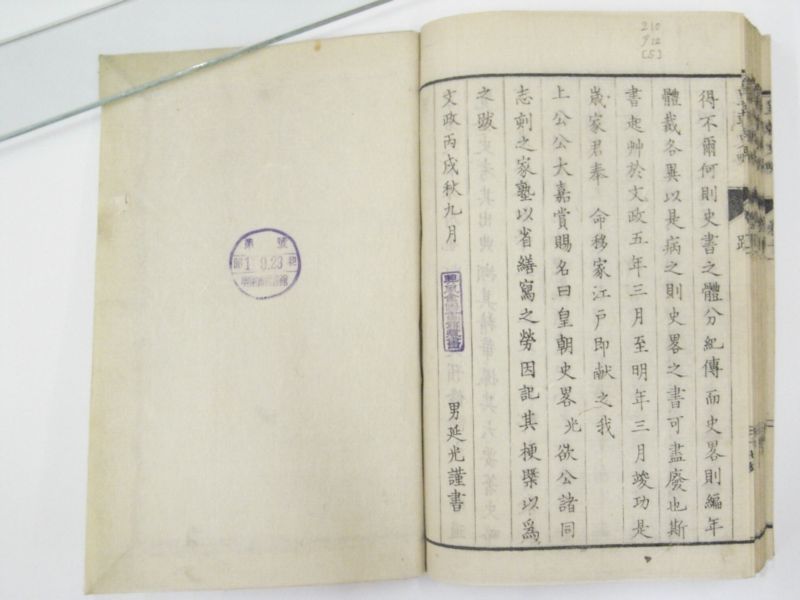 得不爾何則史書之體分紀傳而史畧則編年
體裁各異以是病之則史畧之書可盡廢也斯
書起艸於文政五年三月至明年三月竣功是
歲家君奉 命移家江戸即献之我
上公公大嘉賞賜名曰皇朝史畧光欲公諸同
志刺之家塾以省繕寫之勞因記其梗槩以爲
之跋
文政丙戌秋九月
男延光謹書
210
號
9.23